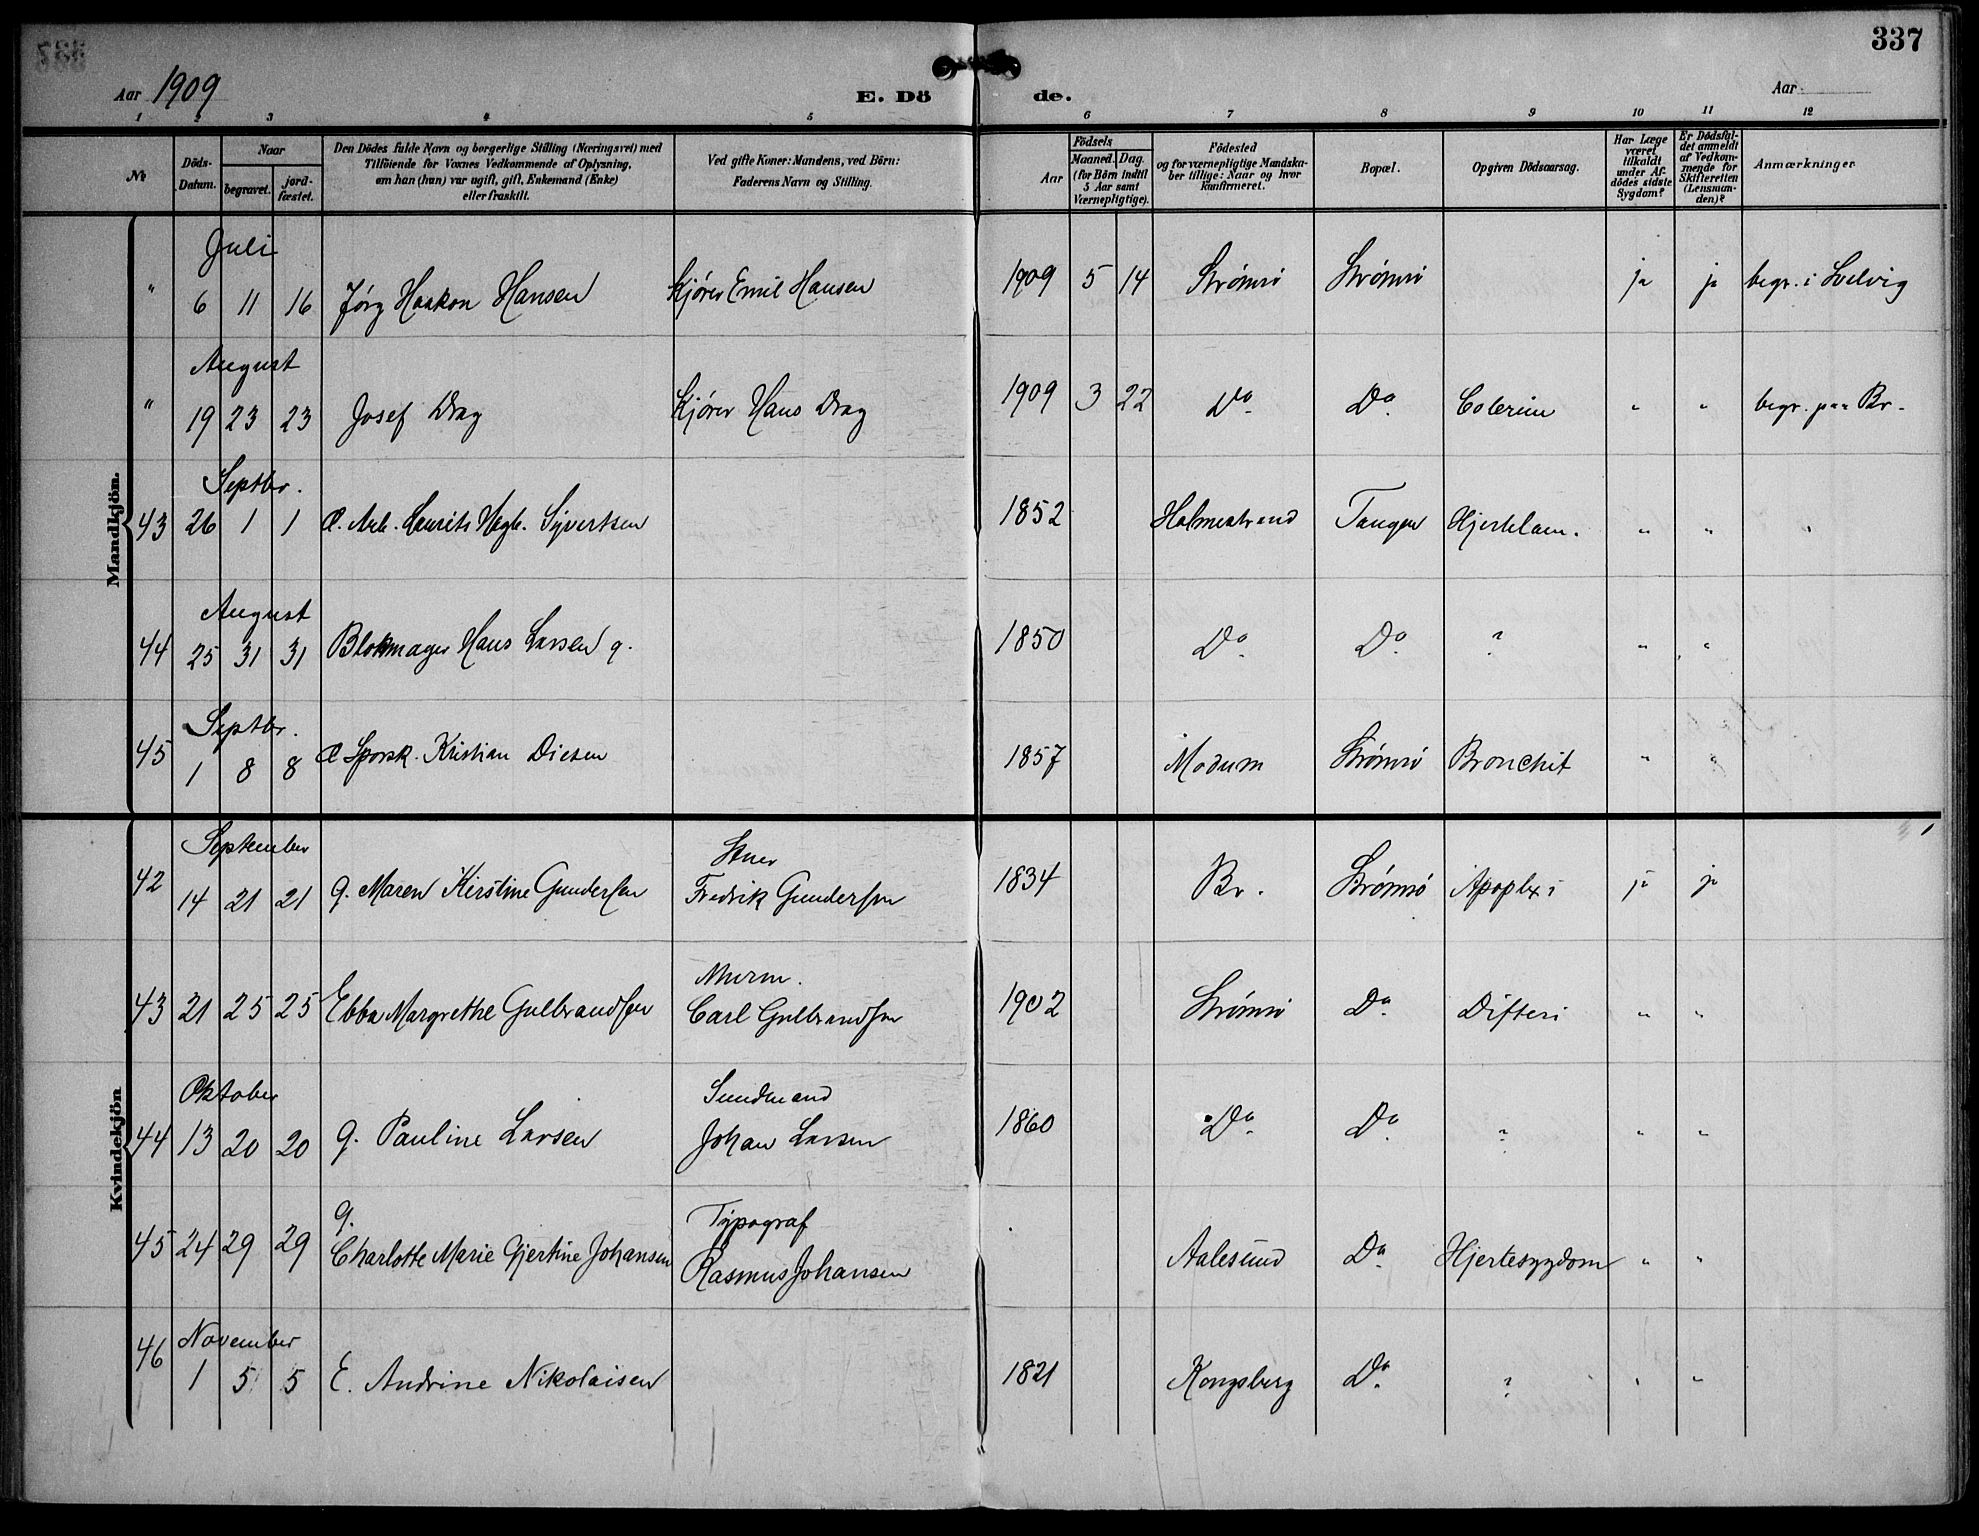 337
Aar 1909
E. Dö de.
Aar
1 2 3 4 5 6 7 8 9 10 11 12
№
Döds-Datum.
Naar
begravet.
jord-fæstet.
Den Dödes fulde Navn og borgerlige Stilling (Næringsvei) med
Tilföiende for Voxnes Vedkommende af Oplysning,
om han (hun) var ugift, gift, Enkemand (Enke)
eller fraskilt.
Ved gifte Koner: Mandens, ved Börn:
Faderens Navn og Stilling.
Födsels
Aar
Maaned. Dag.
(for Börn indtil
5 Aar samt
Værnepligtige).
Födested
og for værnepligtige Mandska-
ber tillige: Naar og hvor
konfirmeret.
Bopæl.
Opgiven Dödsaarsag.
Har Læge
været
tilkaldt
under Af-
dödes sidste
Sygdom?
Er Dödsfal-
det anmeldt
af Vedkom-
mende for
Skifteretten
(Lensman-
den)?
Anmærkninger
Mandkjön.
Juli
" 6 11 16 Jörg Haakon Hansen Kjörer Emil Hansen 1909 5 14 Strömsö Strömsö ja ja begr. i Svelvig
August
" 19 23 23 Josef Drag Kjörer Hans Drag 1909 3 22 Do Do Colerine " " begr. paa Br.
Septbr.
43 26 1 1 Laurits Sijvertsen 1852 Holmestrand Tangen Hjertelam. " " "
August
44 25 31 31 Blokmager Hans Larsen g. 1850 Do Do ? " "
Septbr.
45 1 8 8 Kristian Diesen 1857 Modum Strömsö Bronchit " "
Kvindekjön
September
42 14 21 21 g. Maren Kirstine Gundersen Fredrik Gundersen 1834 Br. Strömsö Apoplexi ja ja
Murm.
43 21 25 25 Ebba Margrethe Gulbrandsen Carl Gulbrandsen 1902 Strömsö Do Difteri " "
Oktober
44 13 20 20 g. Pauline Larsen Johan Larsen 1860 Do Do ? " "
g. Typograf
45 24 29 29 Charlotte Marie Gjertine Johansen Rasmus Johansen Aalesund Do Hjertesygdom " "
November
46 1 5 5 E. Andrine Nikolaisen 1821 Kongsberg Do ? " "